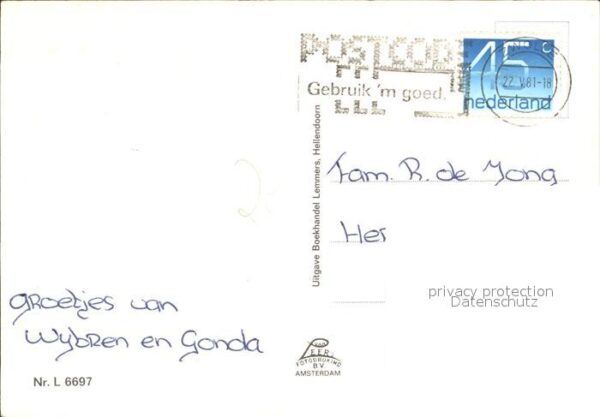 POSTCODE
Gebruik 'm goed.
45 c
nederland
22.V.81-18
Fam. R. de Jong
Hes
privacy protection
Datenschutz
Uitgave Boekhandel Lemmers, Hellendoorn
groetjes van
Wybren en Gonda
VAN LEER
FOTODRUKIND
B.V.
AMSTERDAM
Nr. L 6697